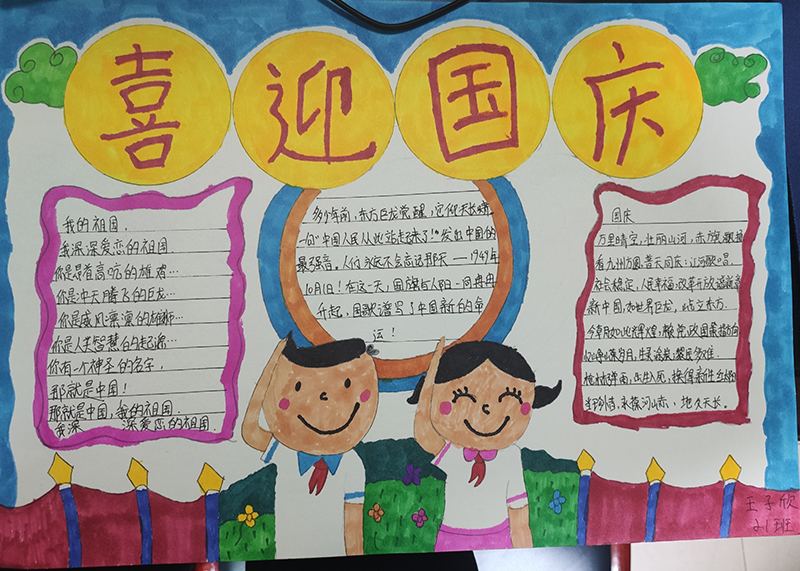 喜迎国庆
我的祖国，
我深深爱恋的祖国
你是昂首高吭的雄鸡…
你是冲天腾飞的巨龙…
你是威风凛凛的雄狮…
你是人类智慧的起源…
你有一个神圣的名字，
那就是中国！
那就是中国，我的祖国.
我深 深爱恋的祖国.
多少年前，东方巨龙觉醒，它仰天长啸
一句"中国人民从此站起来了！"发出中国的
最强音。人们永远不会忘记那天——1949年
10月1日！在这一天，国旗与太阳一同冉冉
升起，国歌谱写了中国新的命
运！
国庆
万里晴空，壮丽山河，赤旗
看九州方圆，普天同庆；江河
社会稳定，人民幸福，改革开放
新中国，如世界巨龙，屹立东方.
今朝如此辉煌，
岁月，生灵涂炭，黎民多难.
枪林弹雨，出生入死，
永葆河山赤，地久天长。
王子欣
21班